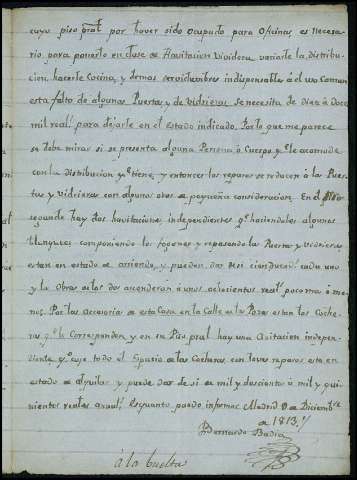 cuyo piso pral por haver sido Ocupado para Oficinas es necesa-
rio para ponerlo en clase de Havitacion Vividera variarle la distribu-
cion, hacerle Cocina, y demas servidumbres indispensables á el uso Comun
esta falto de algunas Puertas y de vidrieras se necesita de diez á doce
mil reals para dejarle en el estado indicado. Por lo que me parece
se debe mirar si se presenta alguna Persona ó Cuerpo qe le acomode
con la distribucion qe tiene, y entonces los reparos se reducen á las Puer-
tas y vidrieras con algunas otras de pequeña consideracion. En el Piso
segundo hay dos havitaciones independientes qe haciendoles algunos
blanqueos componiendo los fogones y repasando las Puertas y vidrieras
estan en estado de arriendo, y pueden dar de si cien ducados cada uno
y la Obra de los dos ascenderan á unos ochocientos reals poco mas ó me-
nos. Por las accesorias de esta Casa en la Calle de la Posas estan las Coche-
ras qe le Corresponden, y en su Piso pral hay una avitacion indepen-
diente qe coje todo el Espacio de las Cocheras con leves reparos esta en
estado de alquilar y puede dar de si de mil y doscientos á mil y qui-
nientos reales anuals. Es quanto puedo informar Madrid 9 de Diciembre
de 1813.
Bernardo Badia
á la buelta